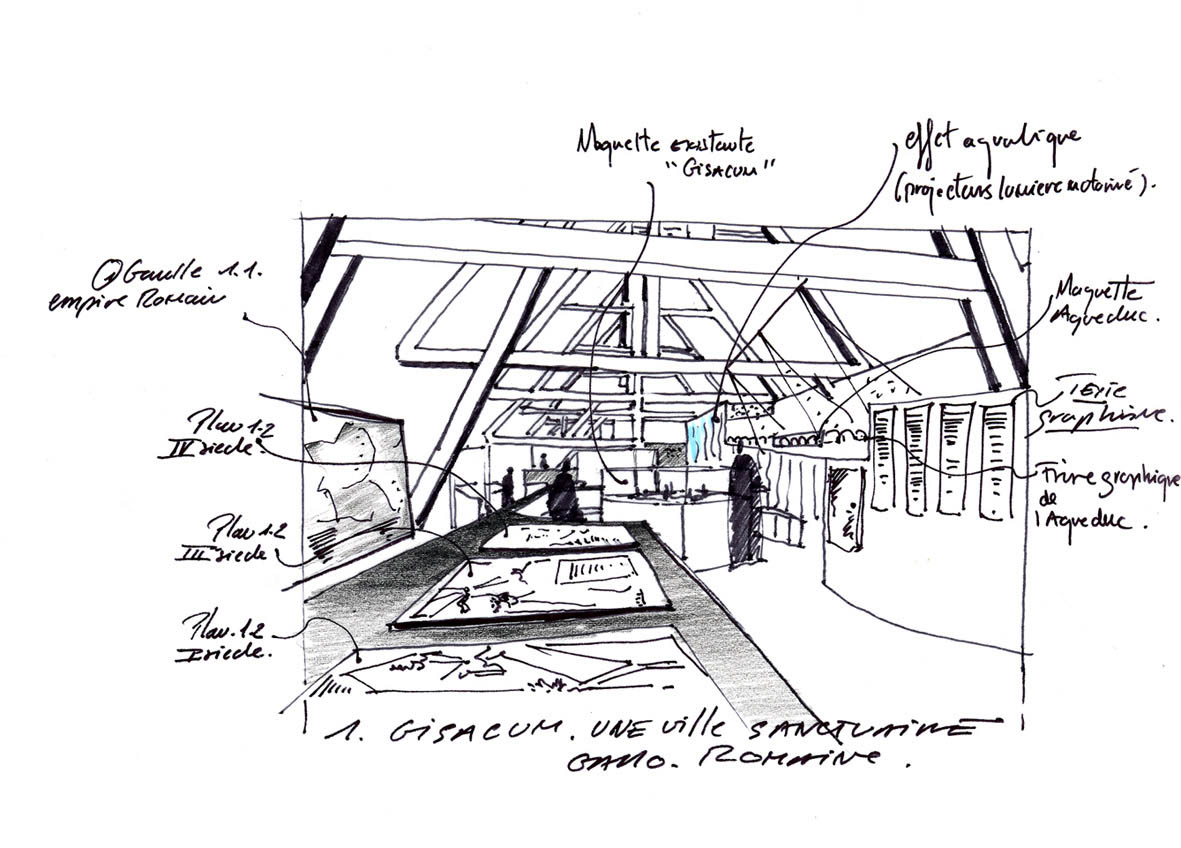 Maquette existante
"GISACUM"
effet aquatique
(projecteurs lumiere motorisé).
Gaule 1.1.
empire Romain
Maquette
Aqueduc.
Texte
graphisme.
Plan 1.2
IV siecle.
Frise graphique
de
l'Aqueduc.
Plan 1.2
III siecle
Plan 1.2
I siecle.
1. GISACUM. UNE ville SANCTUAIRE
GALLO. ROMAINE.